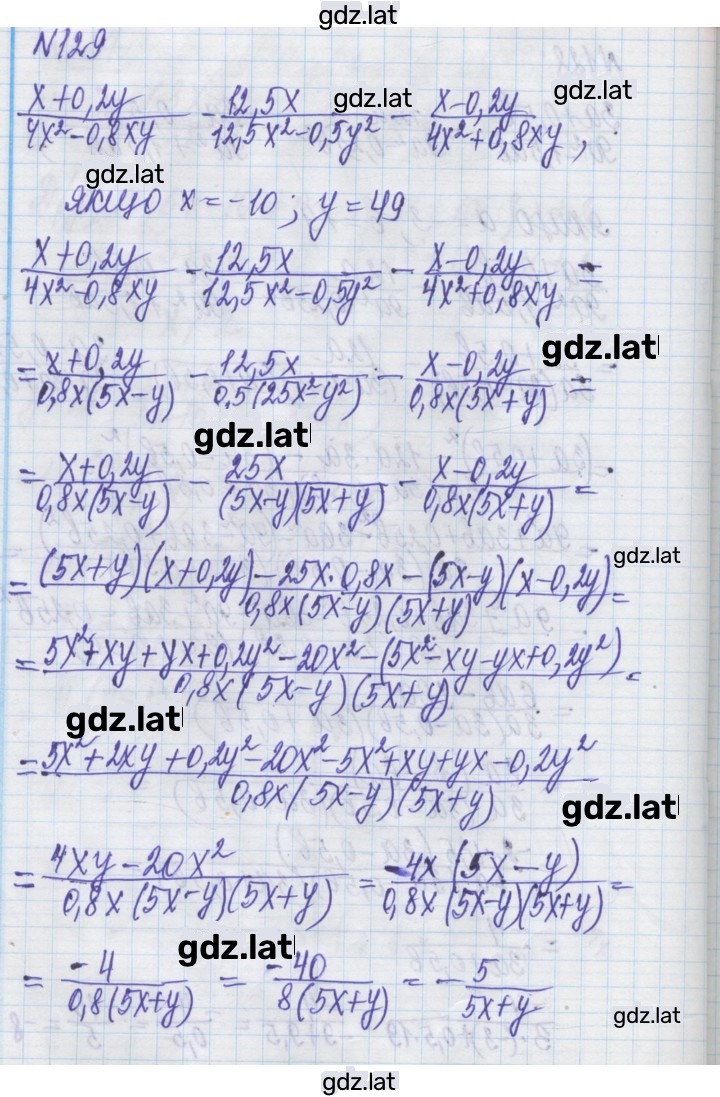 gdz.lat
N129
(x+0,2y)/(4x²-0,8xy) - 12,5x/(12,5x²-0,5y²) - (x-0,2y)/(4x²+0,8xy), gdz.lat gdz.lat
gdz.lat
якщо x=-10; y=49
(x+0,2y)/(4x²-0,8xy) - 12,5x/(12,5x²-0,5y²) - (x-0,2y)/(4x²+0,8xy) =
gdz.lat
= (x+0,2y)/(0,8x(5x-y)) - 12,5x/(0,5(25x²-y²)) - (x-0,2y)/(0,8x(5x+y)) =
gdz.lat
= (x+0,2y)/(0,8x(5x-y)) - 25x/((5x-y)(5x+y)) - (x-0,2y)/(0,8x(5x+y)) =
gdz.lat
= ((5x+y)(x+0,2y)-25x·0,8x-(5x-y)(x-0,2y))/(0,8x(5x-y)(5x+y)) =
= (5x²+xy+yx+0,2y²-20x²-(5x²-xy-yx+0,2y²))/(0,8x(5x-y)(5x+y)) =
gdz.lat
= (5x²+2xy+0,2y²-20x²-5x²+xy+yx-0,2y²)/(0,8x(5x-y)(5x+y))
gdz.lat
= (4xy-20x²)/(0,8x(5x-y)(5x+y)) = -4x(5x-y)/(0,8x(5x-y)(5x+y)) =
gdz.lat
= -4/(0,8(5x+y)) = -40/(8(5x+y)) = - 5/(5x+y)
gdz.lat
gdz.lat